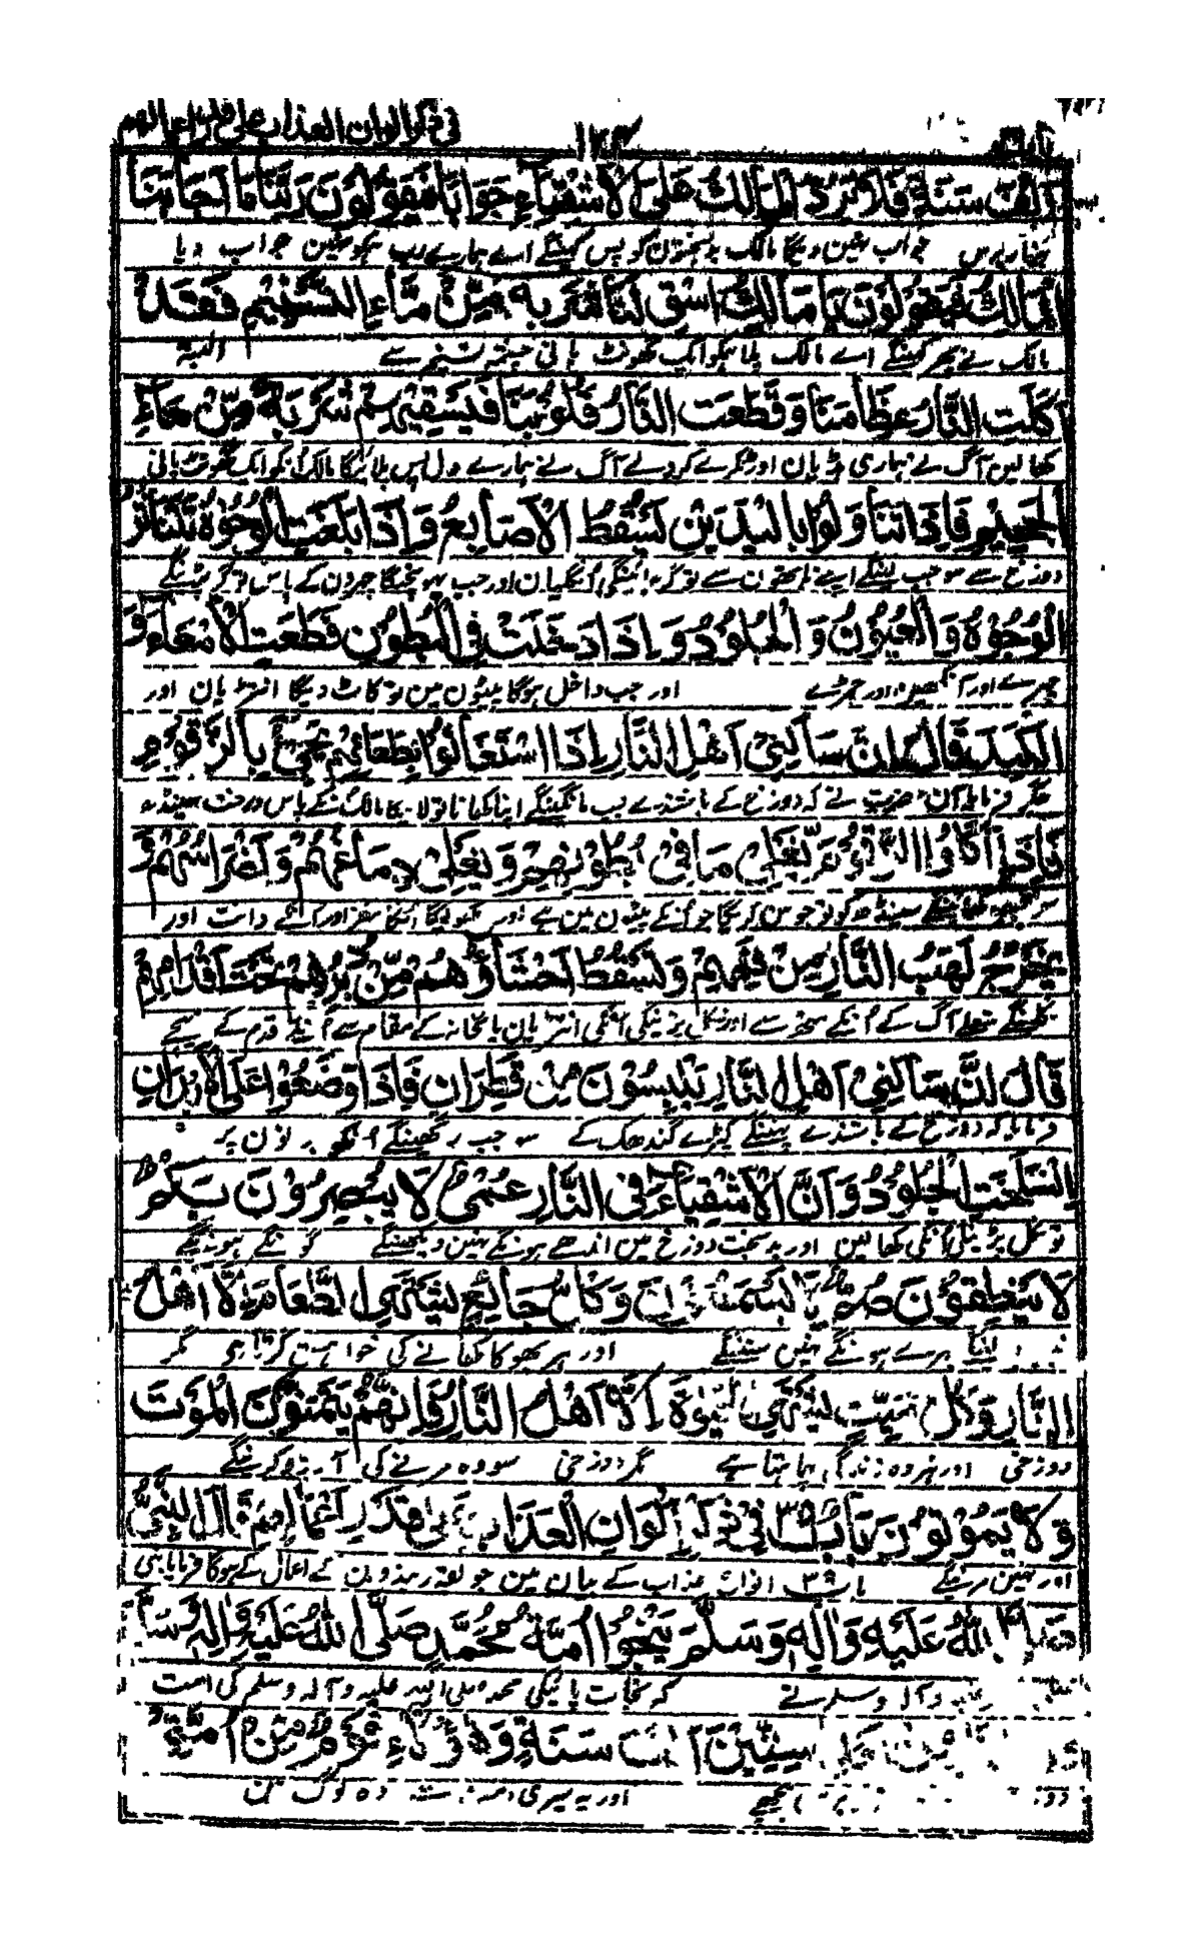 في ذكر الوان العذاب على قدر اعمالهم
۱۳۴
باب ۳۶
اَلْفَ سَنَةٍ فَلَا يَرُدُّ الْمَالِكُ عَلَى الْاَشْقِيَاءِ جَوَابًا فَيَقُوْلُوْنَ رَبَّنَا مَا اَجَابَنَا
ہزار برس جواب نہین دیگا مالک بدبختون کو پس کہینگے اے ہمارے رب ہمکو نہین جواب دیا
الْمَالِكُ فَيَقُوْلُوْنَ يَا مَالِكُ اسْقِ لَنَا شَرْبَةً مِّنْ مَّاءِ التَّسْنِيْمِ فَقَدْ
مالک نے پھر کہینگے اے مالک پلا ہمکو ایک گھونٹ پانی چشمہ تسنیم سے البتہ
اَكَلَتِ النَّارُ عِظَامَنَا وَقَطَعَتِ النَّارُ قُلُوْبَنَا فَيَسْقِيْهِمْ شَرْبَةً مِّنْ مَاءِ
کھا لین آگ نے ہماری ہڈیان اور ٹکرے کر دئے آگ نے ہمارے دل پس پلائیگا مالک انکو ایک گھونٹ پانی
الْحَمِيْمِ فَاِذَا تَنَاوَلُوْا بِالْيَدَيْنِ تَسْقُطُ الْاَصَابِعُ وَاِذَا بَلَغَتِ الْوُجُوْهَ تَتَنَاثَرُ
دوزخ سے سو جب لینگے اپنے ہاتھون سے تو گر جائینگی انگلیان اور جب پہونچیگا چہرون کے پاس تو گر پڑینگے
الْوُجُوْهُ وَالْعُيُوْنُ وَالْجُلُوْدُ وَاِذَا دَخَلَتْ فِي الْبُطُوْنِ قَطَعَتِ الْاَمْعَاءَ وَ
چہرے اور آنکھین اور چمڑے اور جب داخل ہوگا پیٹون مین تو کاٹ دیگا انتڑیان اور
الْكَبِدَ قَالَ اِنَّ سَاكِنِيْ اَهْلِ النَّارِ اِذَا اسْتَغَاثُوْا بِطَعَامِهِمْ يَجِيْءُ بِالزَّقُّوْمِ
جگر فرمایا آن حضرت نے کہ دوزخ کے باشندے جب مانگینگے اپنا کھانا تو لائیگا مالک انکے پاس درخت سینڈھ
فَاِذَا اَكَلُوا الزَّقُّوْمَ يَغْلِيْ مَا فِيْ بُطُوْنِهِمْ وَيَغْلِيْ دِمَاغُهُمْ وَاَضْرَاسُهُمْ وَ
سینڈھ کو تو جوش کریگا جو انکے پیٹون مین ہے اور کھولیگا انکا مغز اور انکے دانت اور
يَخْرُجُ لَهَبُ النَّارِ مِنْ فَمِهِمْ وَتَسْقُطُ اَحْشَاؤُهُمْ مِّنْ دُبُرِهِمْ تَحْتَ اَقْدَامِهِمْ
نکلینگے شعلے آگ کے انکے منھ سے اور نکل پڑینگی انکی انتڑیان پاخانہ کے مقام سے انکے قدم کے نیچے
قَالَ اِنَّ سَاكِنِيْ اَهْلِ النَّارِ يَلْبِسُوْنَ مِنْ قَطِرَانٍ فَاِذَا وَضَعُوْا عَلَى الْاَبْدَانِ
فرمایا کہ دوزخ کے باشندے پہنینگے کپڑے گندھک کے سو جب رکھینگے انکو بدنون پر
انْسَلَخَتِ الْجُلُوْدُ وَاَنَّ الْاَشْقِيَاءَ فِي النَّارِ عُمْيٌ لَا يُبْصِرُوْنَ بُكْمٌ
تو نکل پڑینگی انکی کھالین اور بدبخت دوزخ مین اندھے ہونگے نہین دیکھینگے گونگے ہونگے
لَا يَنْطِقُوْنَ صُمٌّ لَا يَسْمَعُوْنَ وَكُلُّ جَائِعٍ يَشْتَهِي الطَّعَامَ اِلَّا اَهْلُ
بہرے ہونگے نہین سنینگے اور ہر بھوکا کھانے کی خواہش کرتا ہی مگر
النَّارِ وَكُلُّ مَيِّتٍ يَشْتَهِي الْحَيٰوةَ اِلَّا اَهْلُ النَّارِ فَاِنَّهُمْ يَتَمَنَّوْنَ الْمَوْتَ
دوزخی اور ہر مردہ زندگی چاہتا ہے مگر دوزخی سو وہ مرنے کی آرزو کرینگے
وَلَا يَمُوْتُوْنَ بَابٌ ۳۶ فِيْ ذِكْرِ اَلْوَانِ الْعَذَابِ عَلٰى قَدْرِ اَعْمَالِهِمْ قَالَ النَّبِيُّ
اور نہین مرینگے باب ۳۶ انواع عذاب کے بیان مین جو بقدر بندون کے اعمال کے ہوگا فرمایا نبی
صَلَّى اللهُ عَلَيْهِ وَاٰلِهٖ وَسَلَّمَ يَنْجُوْ اُمَّةُ مُحَمَّدٍ صَلَّى اللهُ عَلَيْهِ وَاٰلِهٖ وَسَلَّمَ
وآلہ وسلم نے کہ نجات پائیگی محمد صلی اللہ علیہ وآلہ وسلم کی امت
سَنَةٍ وَهٰؤُلَاءِ قَوْمٌ مِّنْ اُمَّتِيْ
پیچھے اور یہ میری امت وہ لوگ